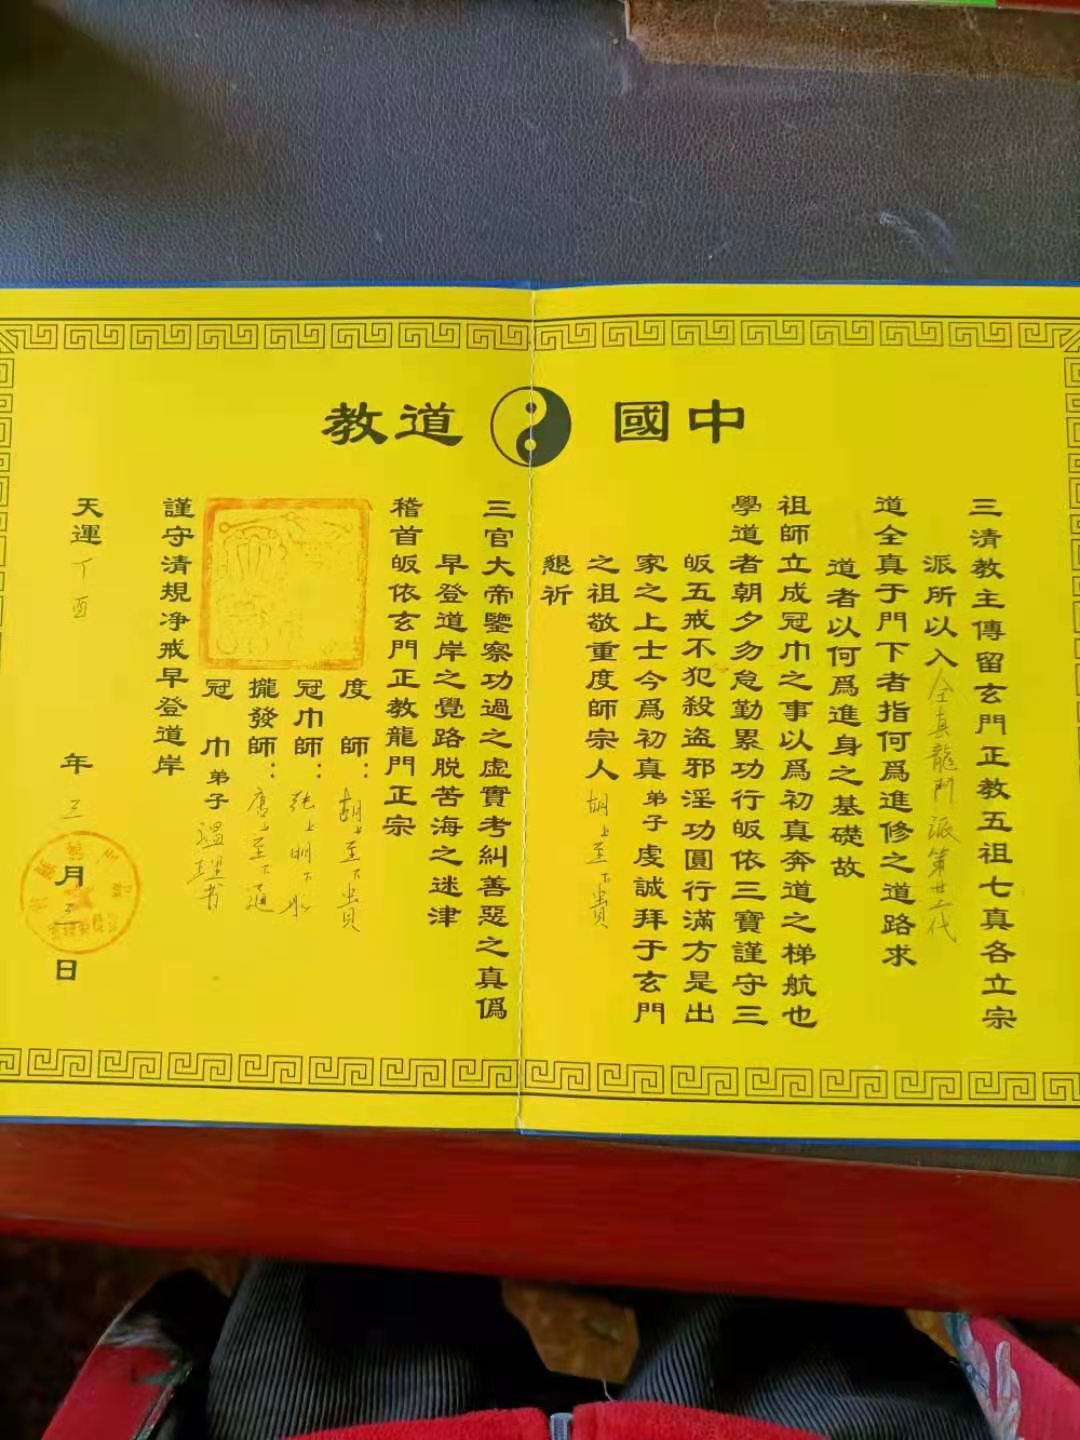 中國道教
三清教主傳留玄門正教五祖七真各立宗
派所以入全真龍門派第廿二代
道全真于門下者指何爲進修之道路求
道者以何爲進身之基礎故
祖師立成冠巾之事以爲初真奔道之梯航也
學道者朝夕勿怠勤累功行皈依三寶謹守三
皈五戒不犯殺盗邪淫功圓行滿方是出
家之上士今爲初真弟子虔誠拜于玄門
之祖敬重度師宗人胡上至下貴
懇祈
三官大帝鑒察功過之虚實考糾善惡之真僞
早登道岸之覺路脱苦海之迷津
稽首皈依玄門正教龍門正宗
度師：胡上至下貴
冠巾師：張上明下
攏發師：唐上至下通
冠巾弟子溫理書
謹守清規净戒早登道岸
天運丁酉年三月三日